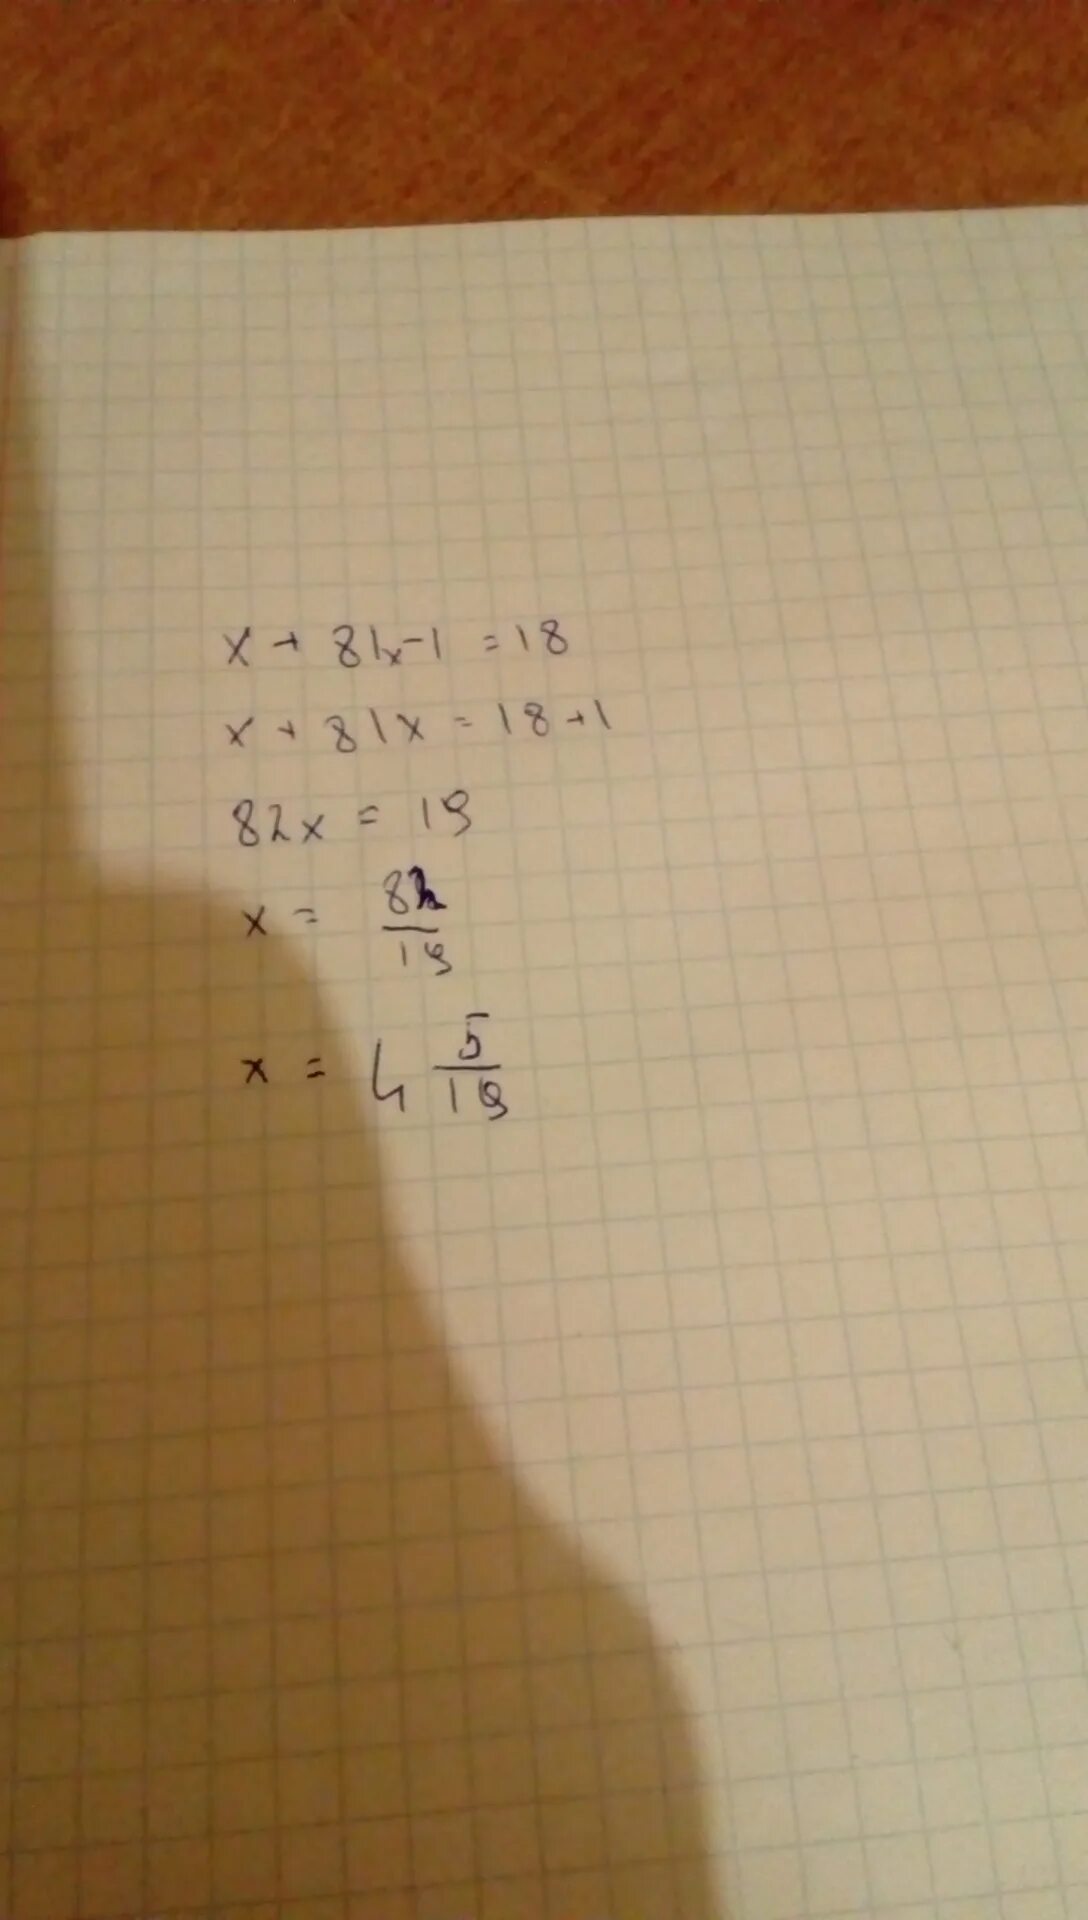 x + 81x-1 = 18
x + 81x = 18+1
82x = 19
x = 82/19
x = 4 5/19